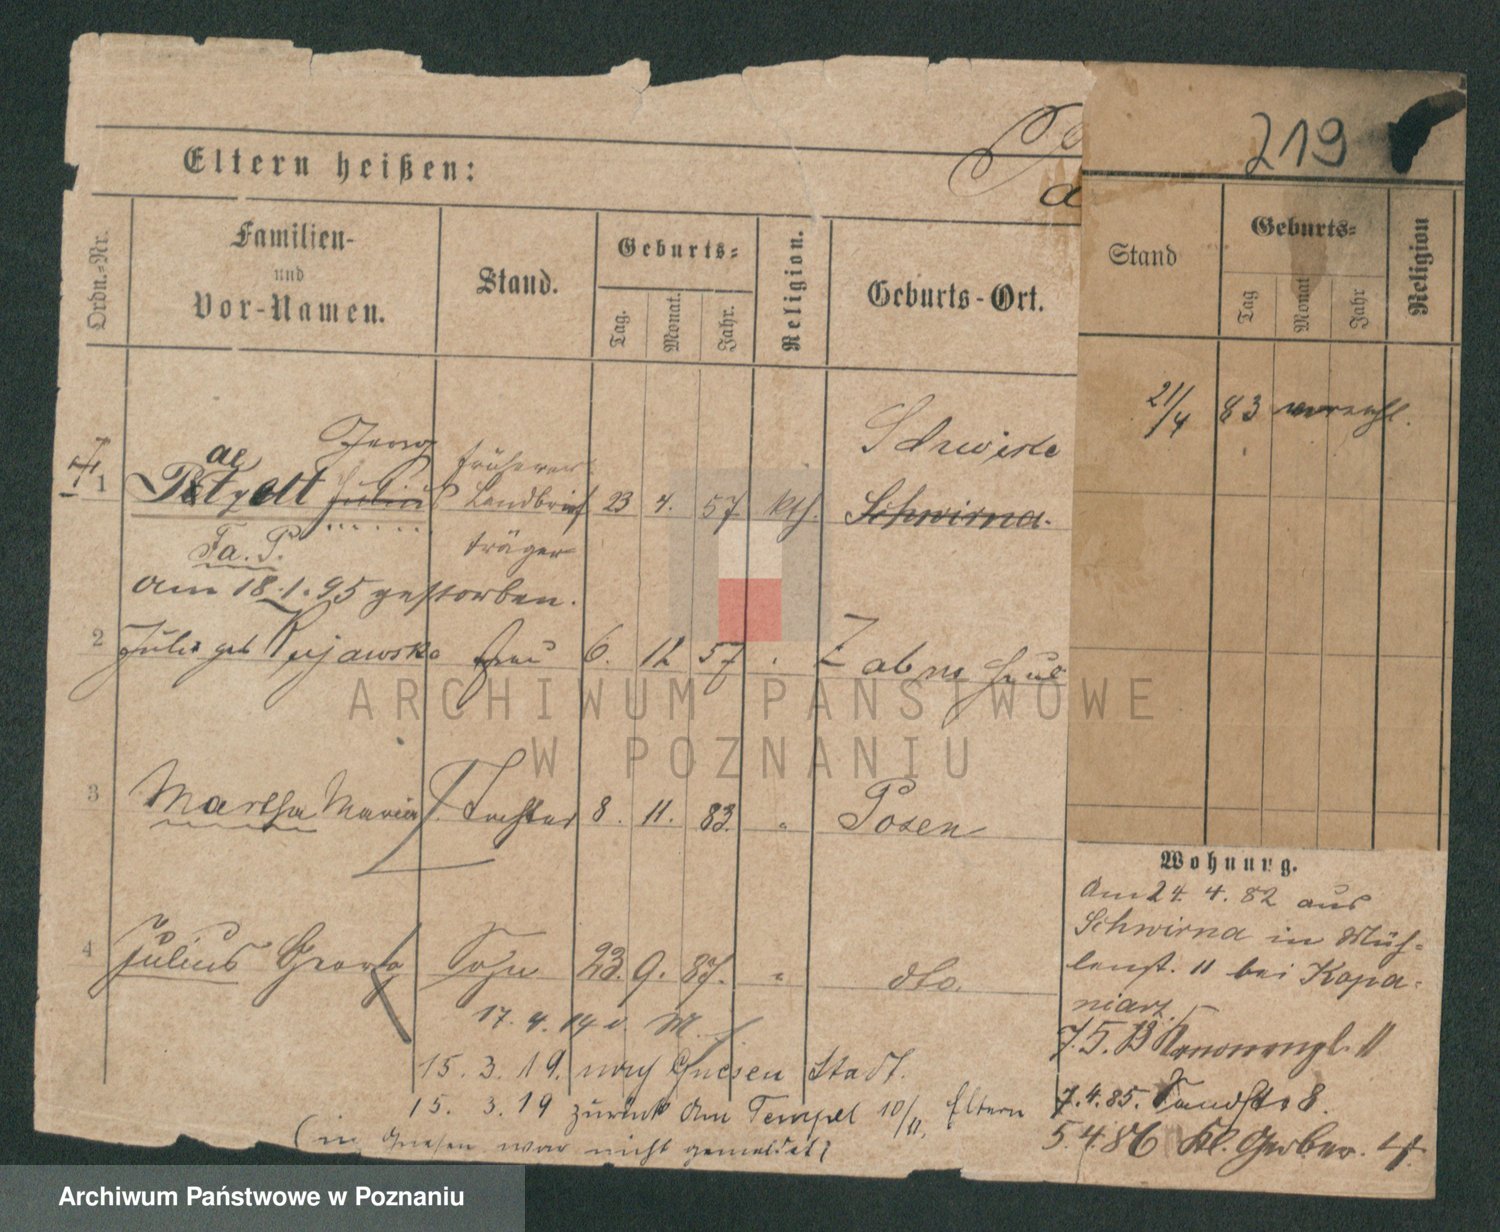 219
Eltern heißen:
Ordn.-Nr.
Familien-
und
Vor-Namen.
Stand.
Geburts-
Tag.
Monat.
Jahr.
Religion.
Geburts-Ort.
Stand
Geburts-
Tag
Monat
Jahr
Religion
21/4 83
Georg
früherer
Schwirle
1 Julius Landbrief 23 4. 57 kth. Schwirna.
träger
Fa. P.
am 18.1.95 gestorben.
2 Julie geb Kujawska Frau 6. 12 57
3 Martha Maria Tochter 8. 11. 83. " Posen
4 Julius Georg Sohn 23. 9. 87. " dto.
17. 4. 14 v. M.
15. 3. 19. nach Gnesen Stadt.
15. 3. 19 zurück Am Tempel 10/11, Eltern
(in Gnesen war nicht gemeldet)
Wohnung.
Am 24. 4. 82 aus
Schwirna in Müh-
lenst. 11 bei Kopa-
niarz.
7.5. 83 11
7.4.85. 8.
5.4.86 Kl. Gerber. 4.
ARCHIWUM PAŃSTWOWE
W POZNANIU
Archiwum Państwowe w Poznaniu